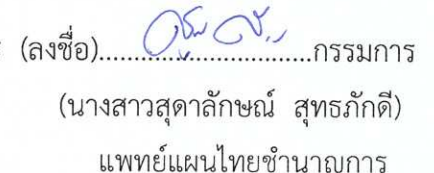 (ลงชื่อ)..................................กรรมการ
(นางสาวสุดาลักษณ์ สุทธภักดี)
แพทย์แผนไทยชำนาญการ